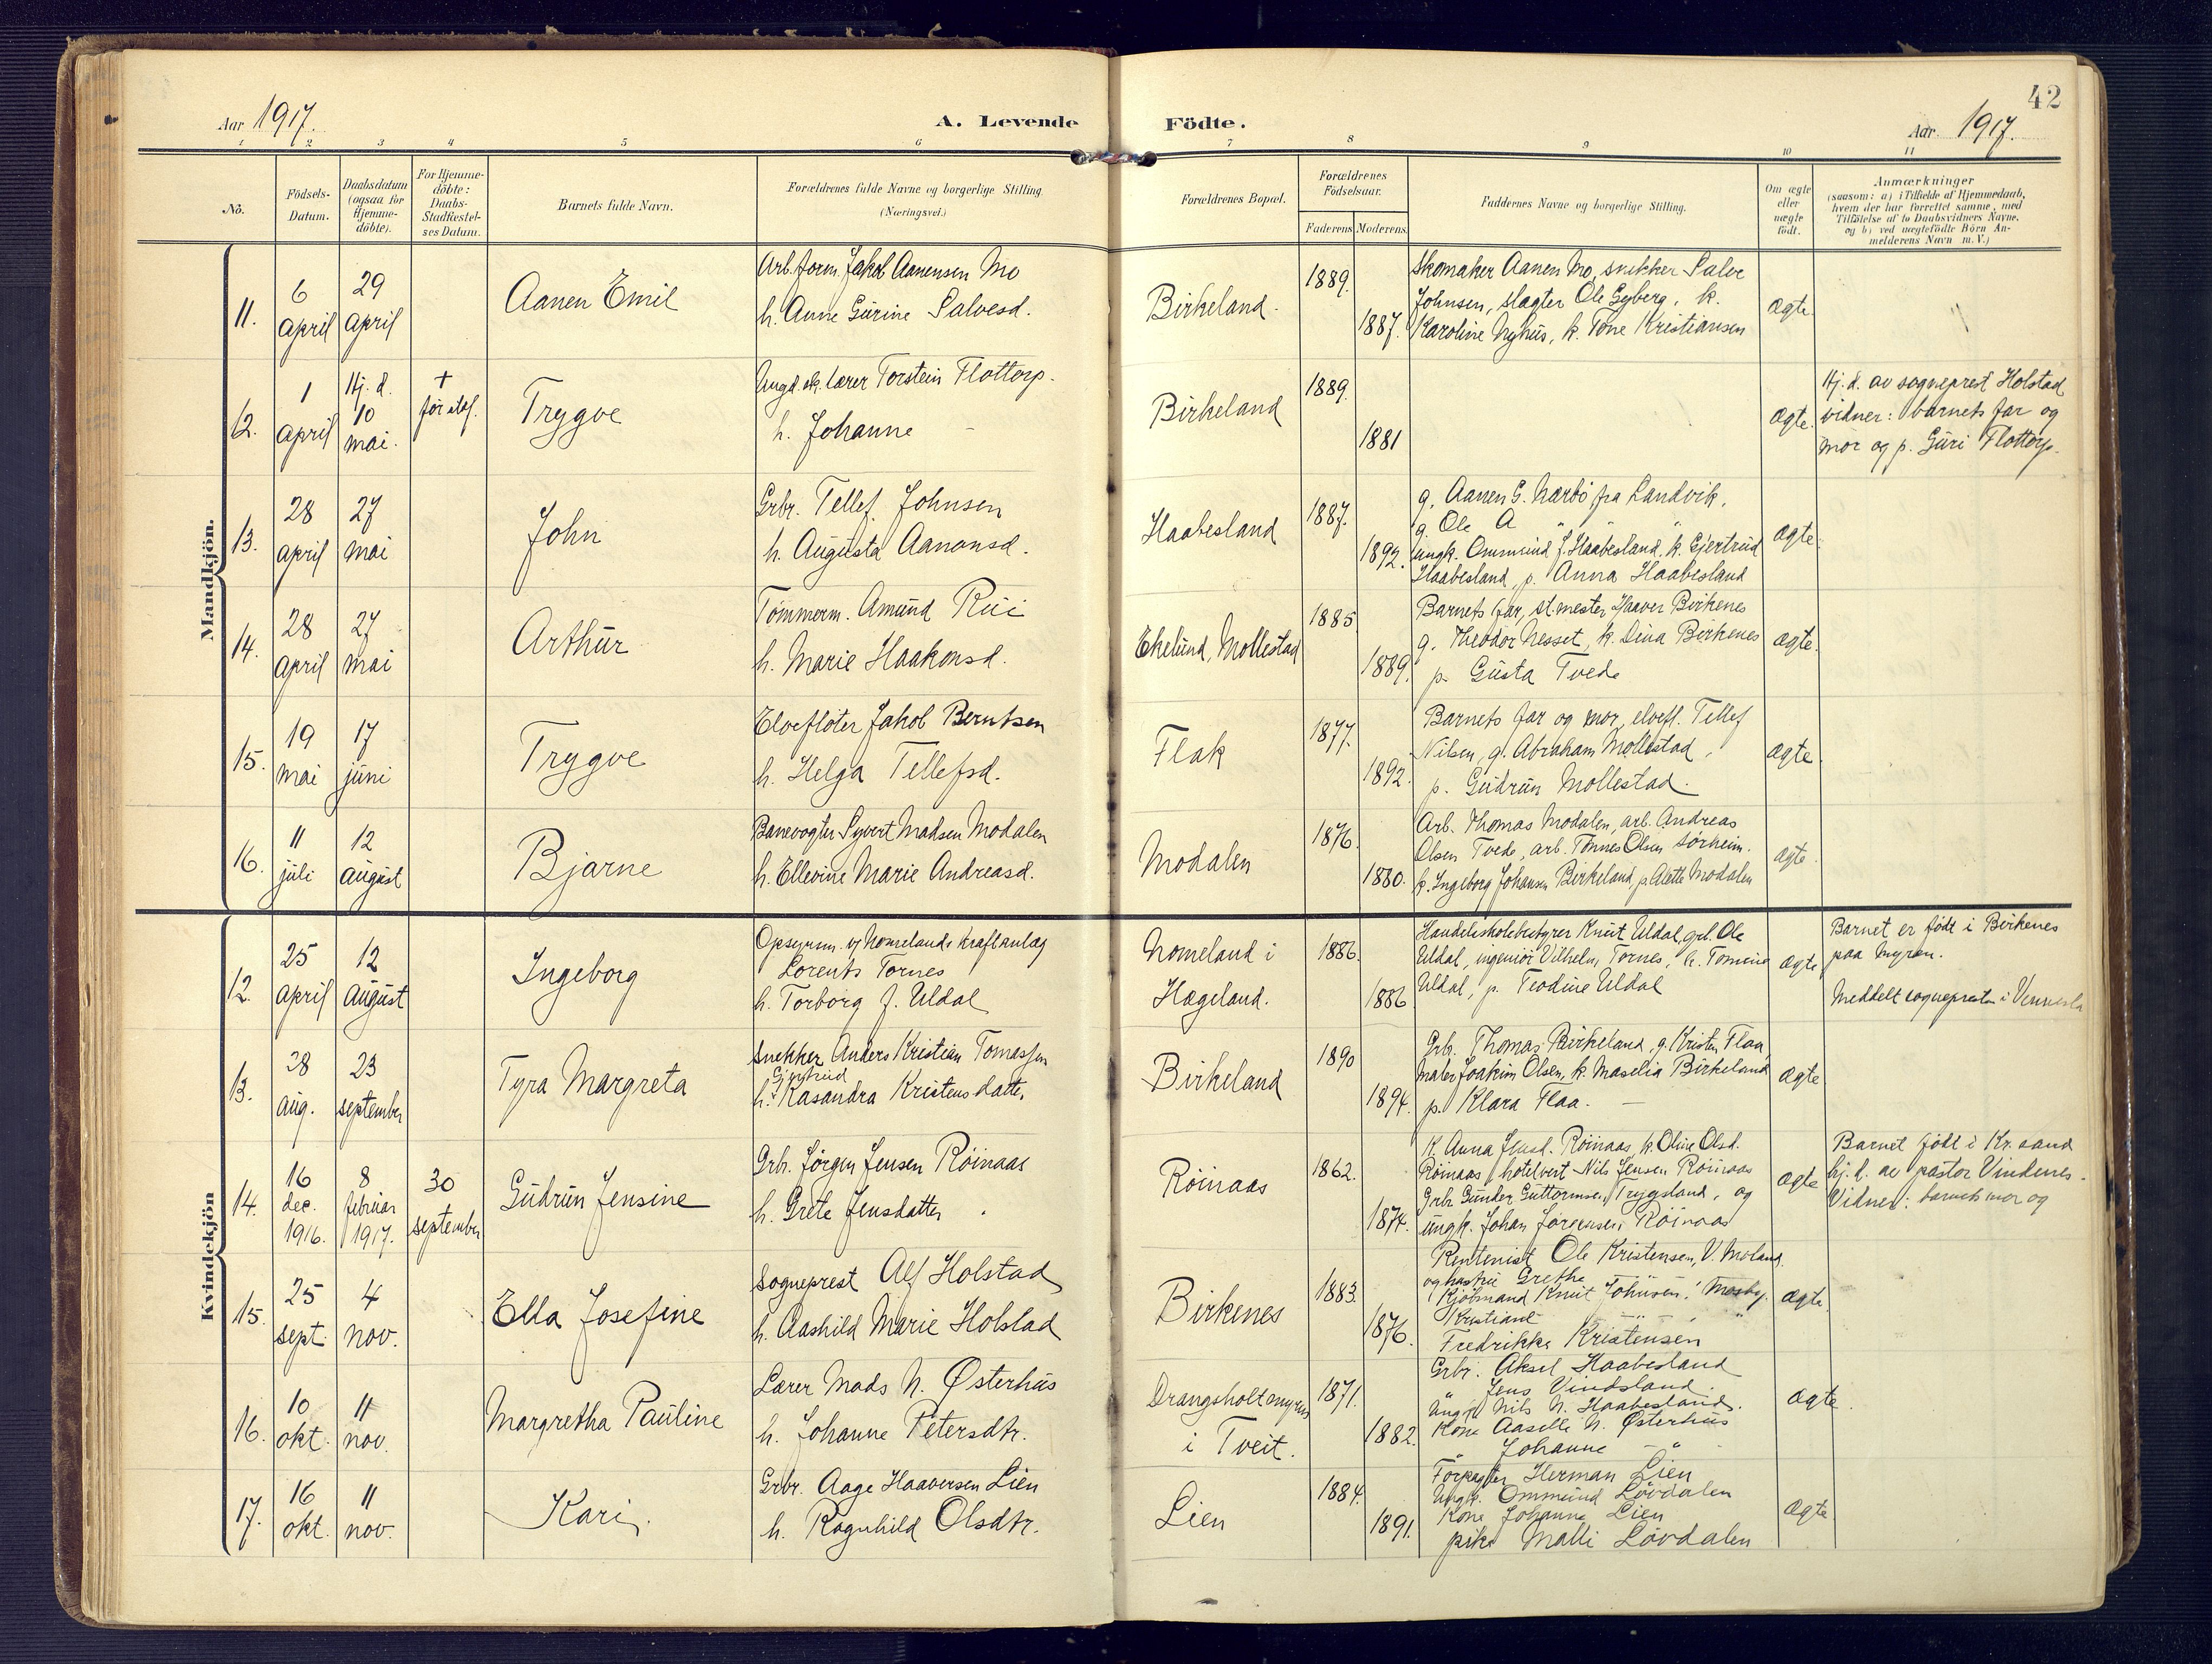 42
Aar 1917.
A. Levende Födte.
Aar. 1917.
1 2 3 4 5 6 7 8 9 10 11
No.
Födsels-
Datum.
Daabsdatum
(ogsaa for
Hjemme-
döbte).
For Hjemme-
döbte:
Daabs-
Stadfæstel-
ses Datum.
Barnets fulde Navn.
Forældrenes fulde Navne og borgerlige Stilling.
(Næringsvei.)
Forældrenes Bopæl.
Forældrenes
Födselsaar.
Faderens
Moderens.
Faddernes Navne og borgerlige Stilling.
Om ægte
eller
uægte
födt.
Anmærkninger
(saasom: a) i Tilfælde af Hjemmedaab,
hvem der har forrettet samme, med
Tilföielse af to Daabsvidners Navne,
og b) ved uægtefödte Börn An-
melderens Navn m. V.)
Mandkjön.
11.
6
april
29
april
Aanen Emil
Arb.form. Jakob Aanensen Mo
h. Anne Gurine Salvesd.
Birkeland.
1889.
1887.
Skomaker Aanen Mo, snekker Salve
Johnsen, slagter Ole Gyberg, k.
Karoline Nyhus, k. Tone Kristiansen
ægte
12.
1
april
Hj. d.
10
mai.
+
før staf.
Trygve
Ungd.sk. lærer Torstein Flottorp.
h. Johanne –
Birkeland
1889.
1881
ægte.
Hj. d. av sogneprest Holstad
vidner: barnets far og
mor og p. Guri Flottorp.
13.
28
april
27
mai
John
Grbr. Tellef Johnsen
h. Augusta Aanonsd.
Haabesland
1887.
1892.
g. Aanen G. Nærbö fra Landvik,
g. Ole A " "
ungk. Ommund J. Haabesland, k. Gjertrud
Haabesland, p. Anna Haabesland
ægte.
14.
28
april
27
mai
Arthur
Tömmerm. Amund Rui
h. Marie Haakonsd.
Ekelund, Mollestad
1885
1889.
Barnets far, st.mester Haaver Birkenes
g. Theodor Nesset, k. Dina Birkenes
p. Gusta Tvede
ægte.
15.
19
mai
17
juni
Trygve
Elvefløter Jakob Berntsen
h. Helga Tellefsd.
Flak
1877.
1892.
Barnets far og mor, elvefl. Tellef
Nilsen, g. Abraham Mollestad,
p. Gudrun Mollestad.
ægte
16.
11
juli
12
august
Bjarne
Banevogter Syvert Madsen Modalen
h. Ellevine Marie Andreasd.
Modalen
1876.
1880.
Arb. Thomas Modalen, arb. Andreas
Olsen Tvede, arb. Tönnes Olsen Sørheim.
k. Ingeborg Johansen Birkeland, p. Alette Modalen
ægte
Kvindekjön
12.
25
april
12
august
Ingeborg
Opsynsm. v/ Nomelands kraftanlæg
Lorents Tornes
h. Torborg f. Uldal
Nomeland i
Hægeland.
1886.
1886
Handelsskolebestyrer Knut Uldal, grb. Ole
Uldal, ingeniør Vilhelm Tornes, k. Tomine
Uldal, p. Teodine Uldal
ægte
Barnet er født i Birkenes
paa Myran.
Meddelt sognepresten i Vennesla
13.
28
aug.
23
september
Tyra Margreta
Snekker Anders Kristian Tomassen
Gjertrud
h. Kasandra Kristensdatter
Birkeland
1890
1894.
Grb. Thomas Birkeland, g. Kristen Flaa,
maler Joakim Olsen, k. Maselia Birkeland
p. Klara Flaa. –
ægte
14.
16
dec.
1916.
8
februar
1917.
30
september
Gudrun Jensine
Grb. Jörgen Jensen Röinaas
h. Grete Jensdatter
Röinaas
1862.
1874.
K. Anna Jensd. Röinaas, k. Oline Olsd.
Röinaas, hotelvert Nils Jensen Röinaas
Grbr Gunder Guttormsen, Trygsland, og
ungk. Johan Jörgensen Röinaas
ægte
Barnet født i Kr. sand
hj. d. av pastor Vindenes.
Vidner: barnets mor og
15.
25
sept.
4
nov.
Ella Josefine
Sogneprest Alf Holstad
h. Aashild Marie Holstad
Birkenes
1883.
1876.
Rentenist Ole Kristensen, V. Moland.
og hustru Grethe
Kjöbmand Knut Johnsen, Mosby.
Kristiane – " – "
Fredrikke Kristensen
ægte.
16.
10
okt.
11
nov.
Margretha Pauline
Lærer Mads N. Østerhus
h. Johanne Petersdtr.
Drangsholtmyren
i Tveit.
1871.
1882.
Grbr. Aksel Haabesland
Jens Vindsland.
Ungk. Nils N. Haabesland.
Kone Aaselle N. Østerhus
Johanne – " –
ægte.
17.
16
okt.
11
nov.
Kari.
Grbr. Aage Haaversen Lien
h. Ragnhild Olsdtr.
Lien
1884.
1891.
Forpagter Herman Lien
Ungk. Ommund Lövdalen
Kone Johanne Lien
pike Malli Lövdalen
ægte